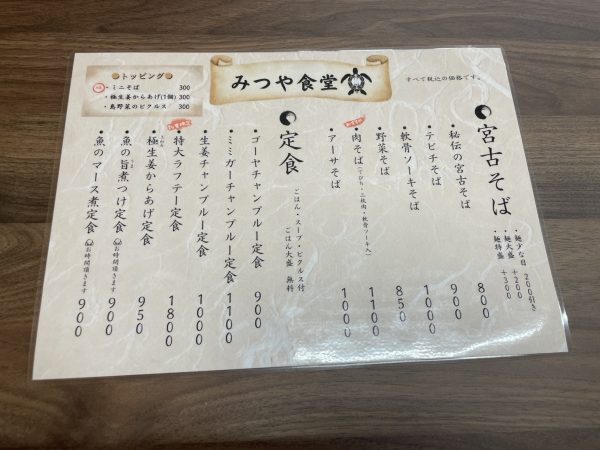 みつや食堂
すべて税込の価格です。
トッピング
・ミニそば 300
・極生姜からあげ(1個) 300
・島野菜のピクルス 300
宮古そば
・麺少な目 200引き
・麺大盛 +200
・麺特盛 +300
・秘伝の宮古そば 800
・テビチそば 900
・軟骨ソーキそば 1000
・野菜そば 850
・肉そば(てびち・三枚肉・軟骨ソーキ入) 1100
・アーサそば 1000
定食
ごはん・スープ・ピクルス付
ごはん大盛 無料
・ゴーヤチャンプルー定食 900
・ミミガーチャンプルー定食 1100
・生姜チャンプルー定食 1000
・特大ラフテー定食 1800
・極生姜からあげ定食 950
・魚の旨煮つけ定食 お時間頂きます 900
・魚のマース煮定食 お時間頂きます 900